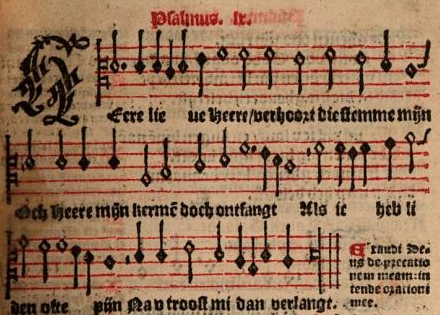 Psalmus. lx.
HEere lie ue Heere/verhoort die stemme mijn
Och Heere mijn kermē doch ontfangt Als ic heb li
den ofte pijn Nav troost mi dan verlangt.
Exaudi De⸗
us de⸗precatio
nem meam: in
tende orationi
mee.